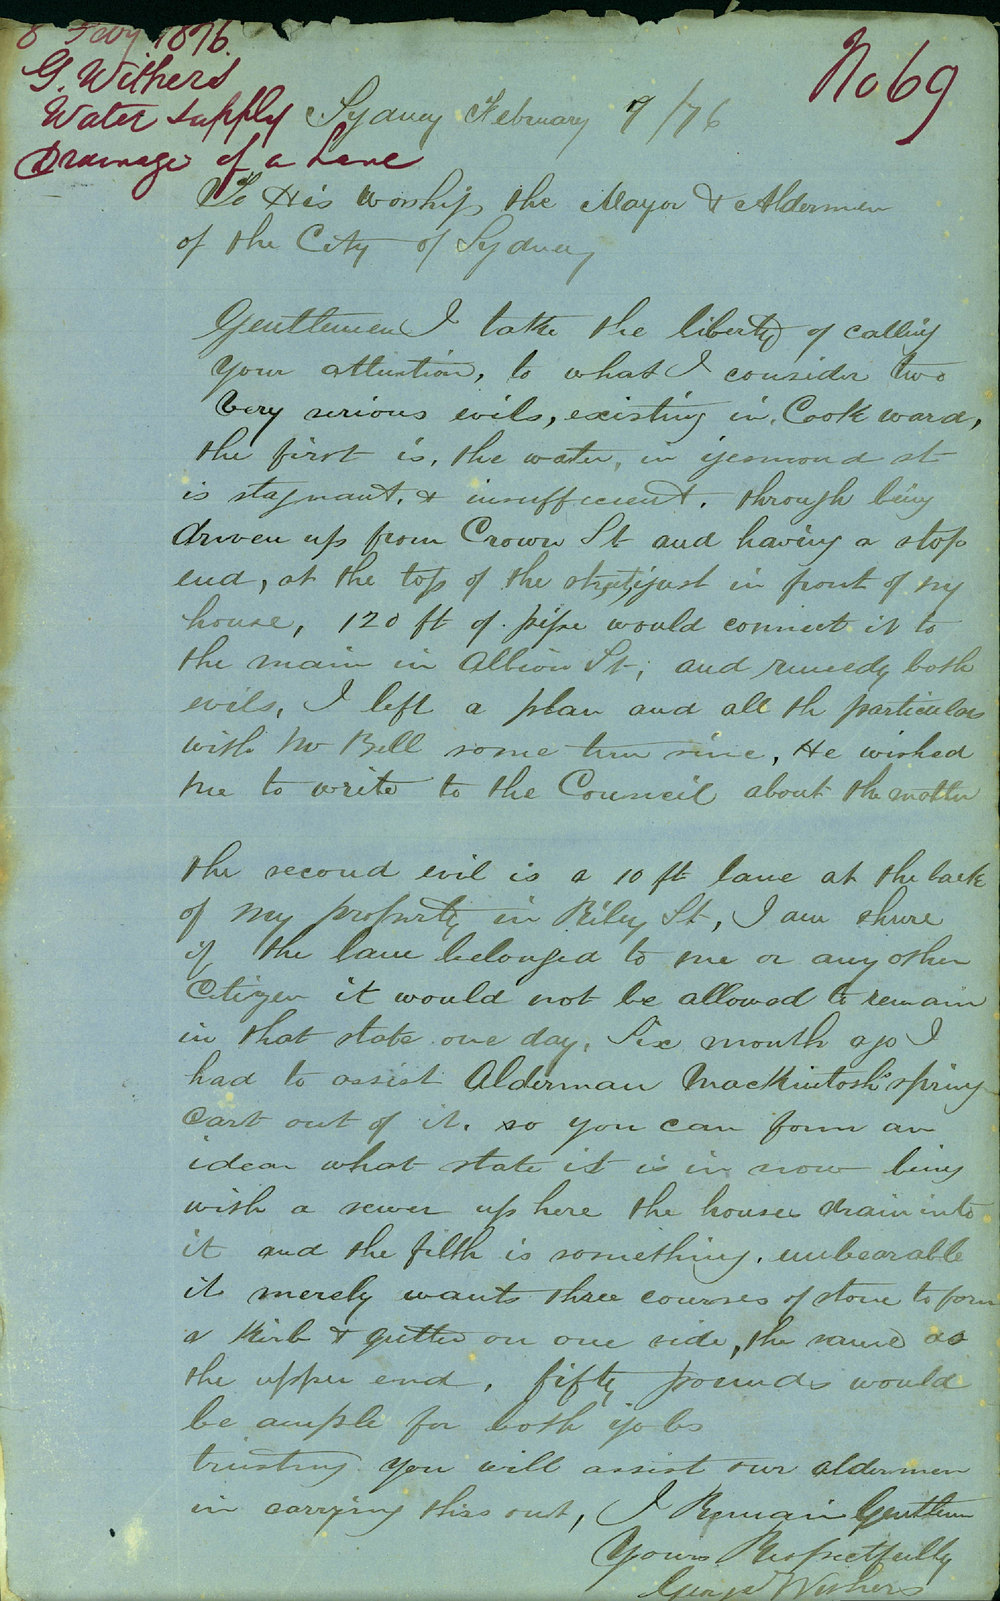 8 Feby 1876.
G. Withers
Water supply
Drainage of a Lane
No 69
Sydney February 7/76
To His Worship the Mayor & Aldermen
of the City of Sydney
Gentlemen I take the liberty of calling
your attention, to what I consider two
very serious evils, existing in Cook ward,
the first is, the water, in yesmond st
is stagnant, & insufficient, through being
driven up from Crown St and having a stop
end, at the top of the street, just in front of my
house, 120 ft of pipe would connect it to
the main in Albion St, and remedy both
evils, I left a plan and all the particulars
with Mr Bell some time since, He wished
me to write to the Council about the matter
the second evil is a 10 ft lane at the back
of my property in Riley St, I am shure
if the lane belonged to me or any other
Citizen it would not be allowed to remain
in that state one day, Six month ago I
had to assist Alderman Mackintosh's spring
cart out of it, so you can form an
idear what state it is in now being
with a sewer up here the houses drain into
it and the filth is something unbearable
it merely wants three courses of stone to form
a kirb & gutter on one side, the same as
the upper end, fifty pounds would
be ample for both jobs
trusting you will assist our aldermen
in carrying this out, I Remain Gentlemen
Yours Respectfully
George Withers